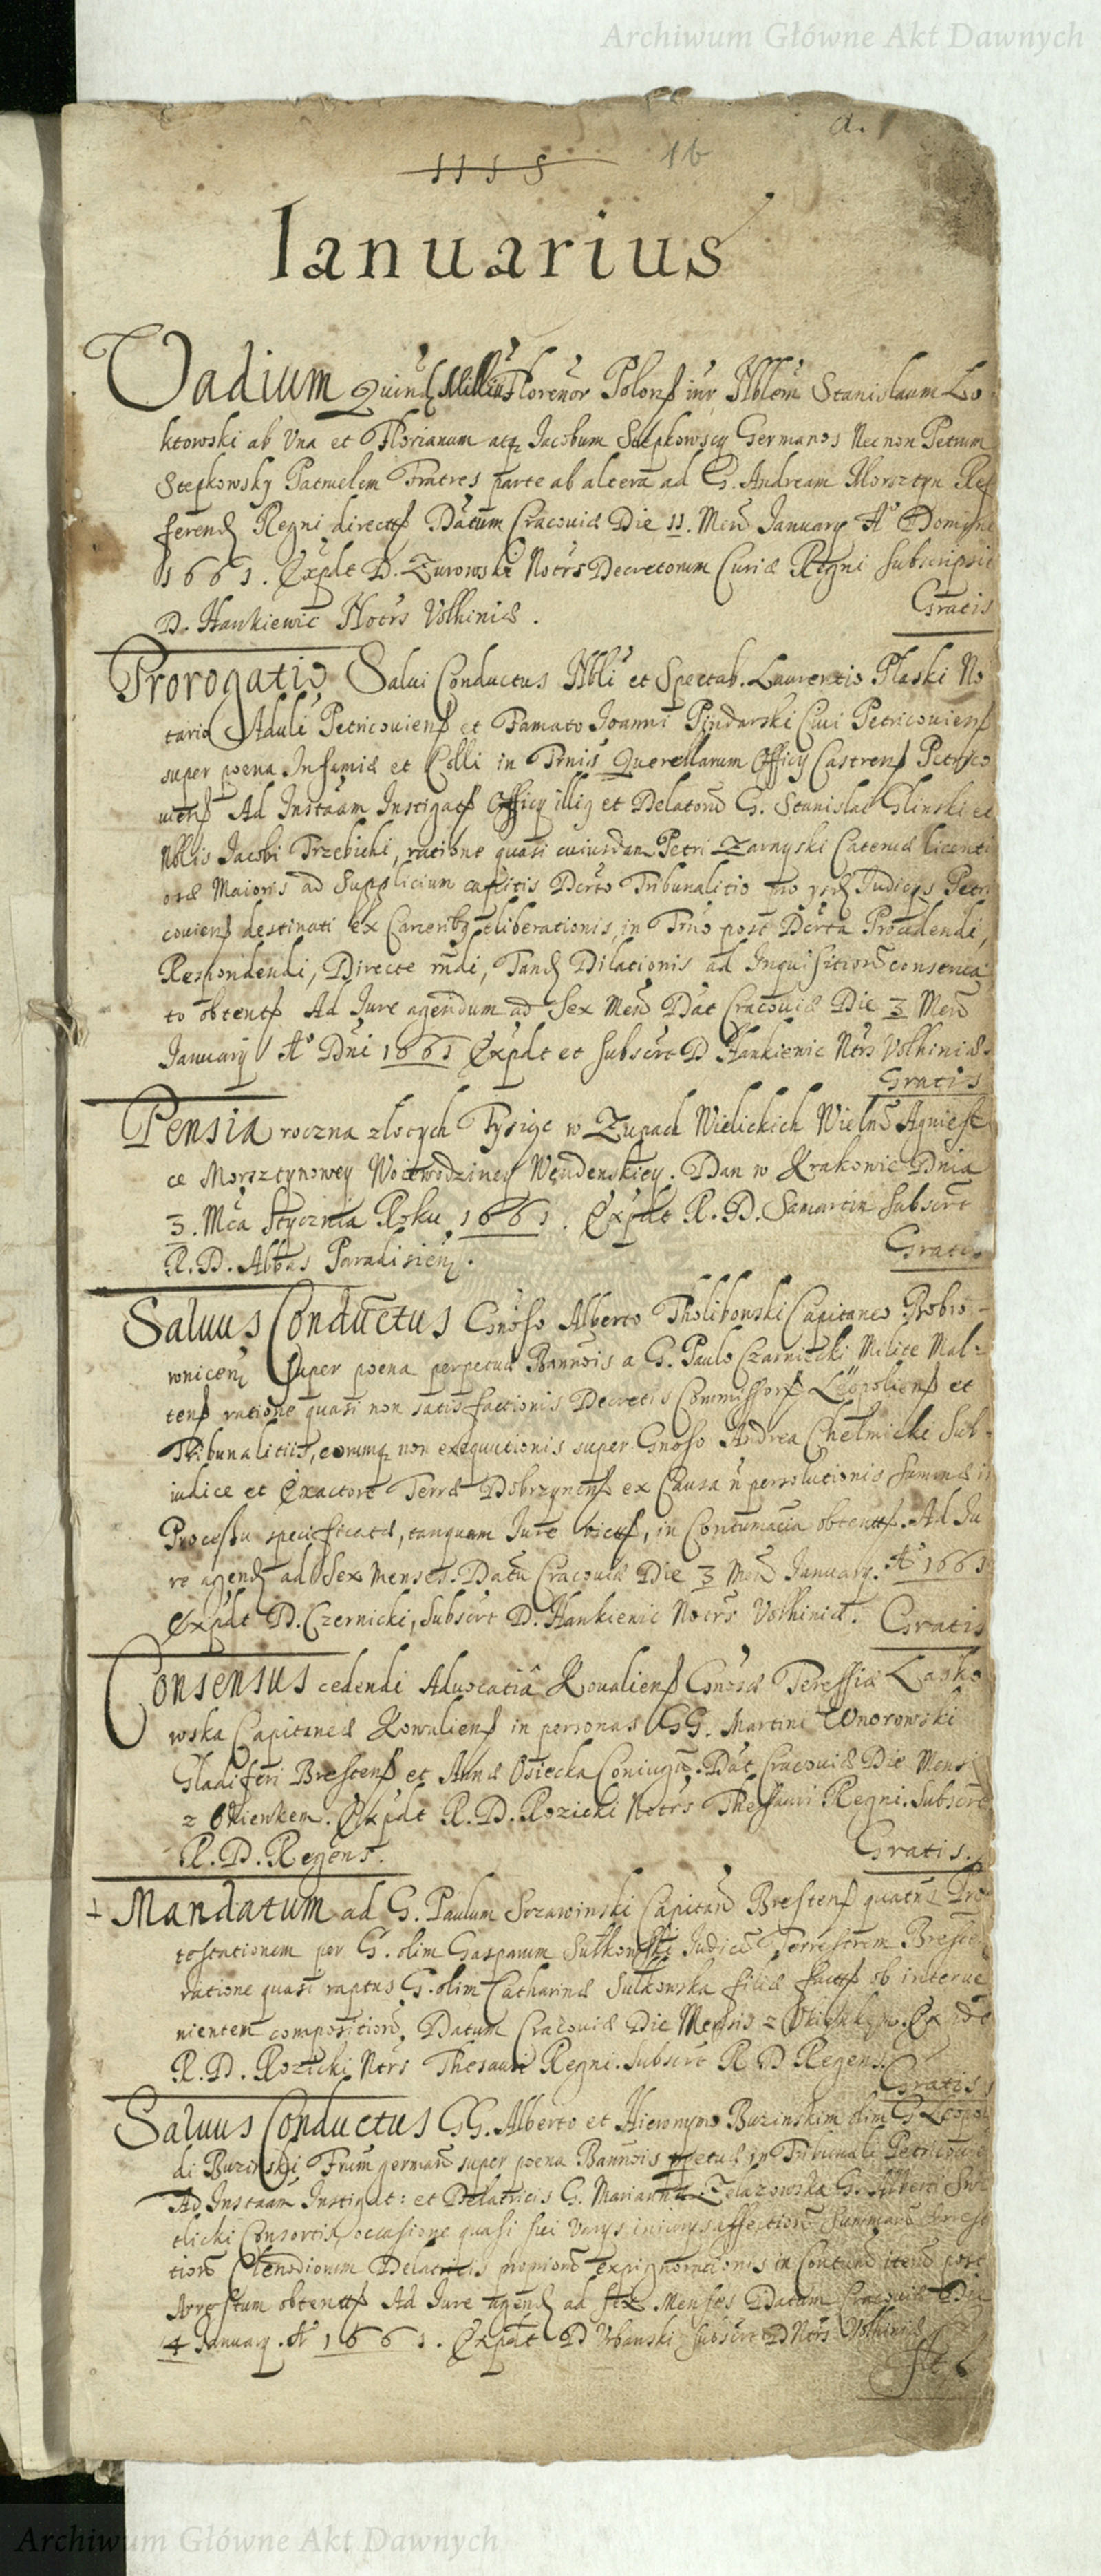 Archiwum Główne Akt Dawnych
a. 1
1b
Ianuarius
Vadium Quinq Milliu Florenor Polonß inr Nblem Stanislaum Lo
ktowski ab Una et Florianum atq Jacobum Stepkowscy Germanos Nec non Petrum
Stepkowsky Patruelem Fratres parte ab altera ad G. Andream Morsztyn Ref
ferend Regni directß Datum Cracoviæ Die 11. Men January A° Domini
1661. Expdt D. Zurowski Notrs Decretorum Curiæ Regni Subscripsit
D. Hankiewic Notrs Volhiniæ.
Gratis
Prorogatio Salui Conductus Nbli et Spectab. Laurentio Plaski No
tario Aduli Petricouienß et Famato Joanni Pindarski Ciui Petricouienß
super poena Infamiæ et Colli in Trnis Querellarum Officy Castrenß Petrico
uienß Ad Instaam Instigatß Officy illig et Delatorũ G. Stanislai Glinski et
Nblis Jacobi Trzebicki, ratione quasi cuiusdam Petri Zarnyski Catenæ licenti
osæ Maioris ad Supplicium capitis Dcrto Tribunalitio pro Judices Petri
couienß destinati ex Carceribg eliberationis, in Trno post Dcrta Procedendi,
Respondendi, Directe rndi, Tand Dilationis ad Inquisitiorũ conserua
to obtentß Ad Jure agendum ad Sex Men Dat Cracouiæ Die 3 Men
January A° Dni 1661 Expdt et subscrt D Hankienic Ntrs Volhiniæ.
Gratis
Pensia roczna zlotych Tysiąc w Zupach Wielickich Wielm Agniesz
ce Morsztynowey Woiewodziney Wendenskiey. Dan w Krakowie Dnia
3. Mca Stycznia Roku 1661. Expdt R. D. Samartin Subscrt
R. D. Abbas Paradisien.
Gratis
Saluus Conductus Gnoso Alberto Tholibowski Capitaneo Bobro-
wnicen super poena perpetuæ Bannois a G. Paulo Czarniecki Milite Mal-
tenß ratione quasi non satisfactionis Decretis Commissorß Leopolienß et
Tribunalitiis, eorumq non exequutionis super Gnoso Andrea Chełmicki Sub-
iudice et Exactore Terræ Dobrzynenß ex Causa n persolutionis summæ in
Processu specificatæ, tanquam Jure victß, in Contumacia obtentß. Ad Ju
re agend ad Sex Menses. Datũ Cracouiæ Die 3 Men January. A° 1661
Expdt D. Czernicki, Subscrt D. Hankienic Notrs Volhiniæ.
Gratis
Consensus cedendi Aduocatiã Koualienß Gnosæ Teressiæ Lasko
wska Capitaneæ Kowalienß in personas GG. Martini Wnorowski
Gladiferi Brestenß et Annæ Osiecka Coniugũ. Dat Cracouiæ Die Mensis
z Okienkem. Expdt R. D. Rozicki Notrs Thesauri Regni. Subscrt
R. D. Regens.
Gratis.
+ Mandatum ad G. Paulum Szczawinski Capitanũ Brestenß quatus Pro
testationem per G. olim Gasparum Sulkowski Judicẽ Terrestrem Breste
ratione quasi raptus G. olim Catharinæ Sulkowska filiæ factß ob interue
nientem compositionẽ. Datum Cracouiæ Die Mensis z Okienkem. Expdt
R. D. Rozicki Ntrs Thesauri Regni. Subscrt R D Regens.
Gratis
Saluus Conductus GG. Alberto et Hieronymo Buzinskim olim G. Leopol
di Buzinski Frum german super poena Bannois ppetuæ in Tribunali Petricouie
Ad Instaam Instigat: et Delatricis G. Marianna Zelazowska G. Alberti
Consortis, occasione quasi sui varys iniurys affection Summarũ Arest
tion Clenodiorum Delatricis proprior expignorationis in Contum item post
Arrestum obtentß Ad Jure agend ad sex Menses Datum Cracouiæ Die
4 January. A° 1661. Expdt D Vbanski Subscrt D Ntrs Volhiniæ
Archiwum Główne Akt Dawnych